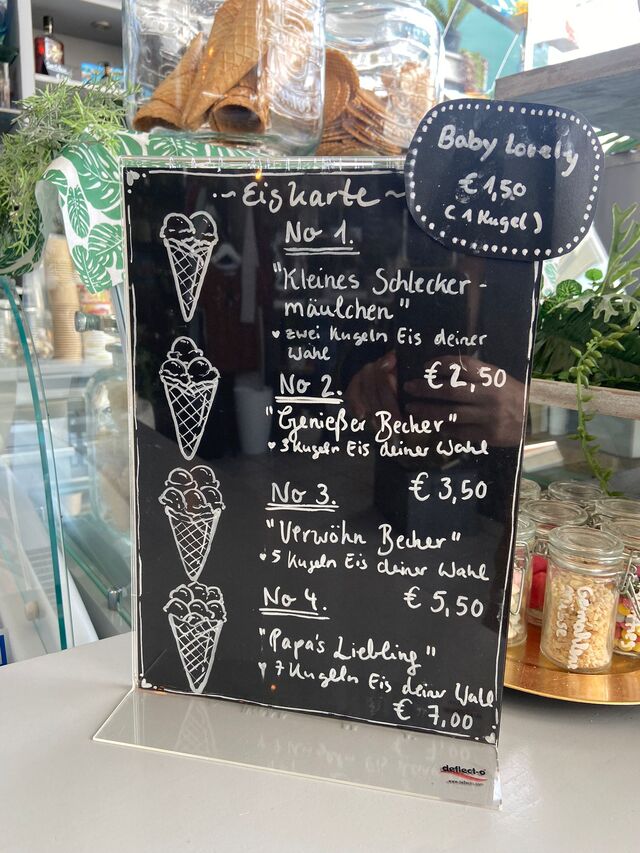 Baby lovely
€ 1,50
(1 Kugel)
~ Eiskarte ~
No 1.
"Kleines Schlecker-
mäulchen"
♥ zwei Kugeln Eis deiner
Wahl
€ 2,50
No 2.
"Genießer Becher"
♥ 3 Kugeln Eis deiner Wahl
€ 3,50
No 3.
"Verwöhn Becher"
♥ 5 Kugeln Eis deiner Wahl
€ 5,50
No 4.
"Papa's Liebling"
♥ 7 Kugeln Eis deiner Wahl
€ 7,00
deflect-o